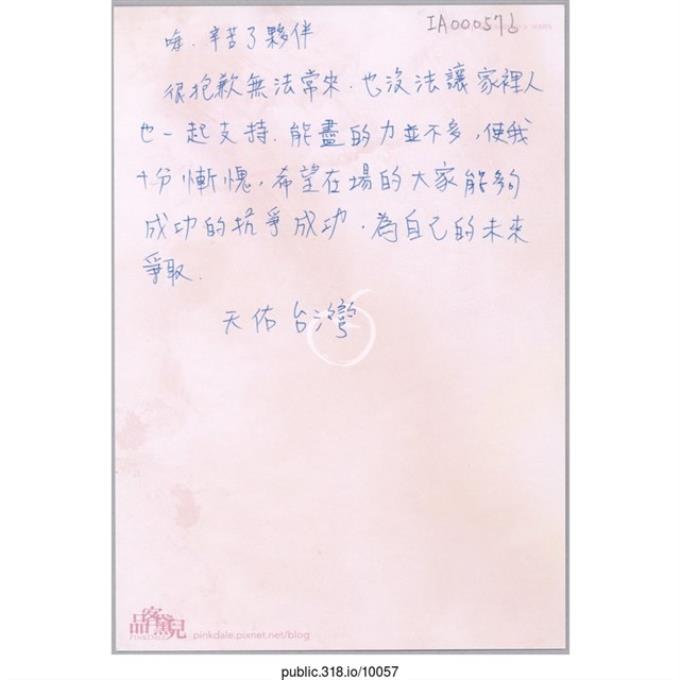 IA000576
嗨．辛苦了夥伴
很抱歉無法常來．也沒法讓家裡人
也一起支持．能盡的力並不多，使我
十分慚愧，希望在場的大家能夠
成功的抗爭成功．為自己的未來
爭取．
天佑台灣
品客黛兒
PINKDALE
pinkdale.pixnet.net/blog
public.318.io/10057